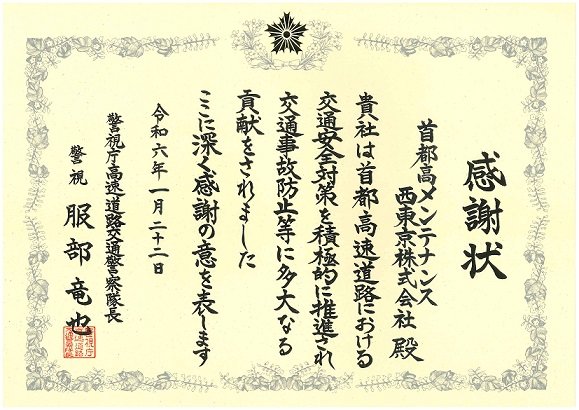 感謝状
首都高メンテナンス
西東京株式会社 殿
貴社は首都高速道路における
交通安全対策を積極的に推進され
交通事故防止等に多大なる
貢献をされました
ここに深く感謝の意を表します
令和六年一月二十二日
警視庁高速道路交通警察隊長
警視 服部竜也